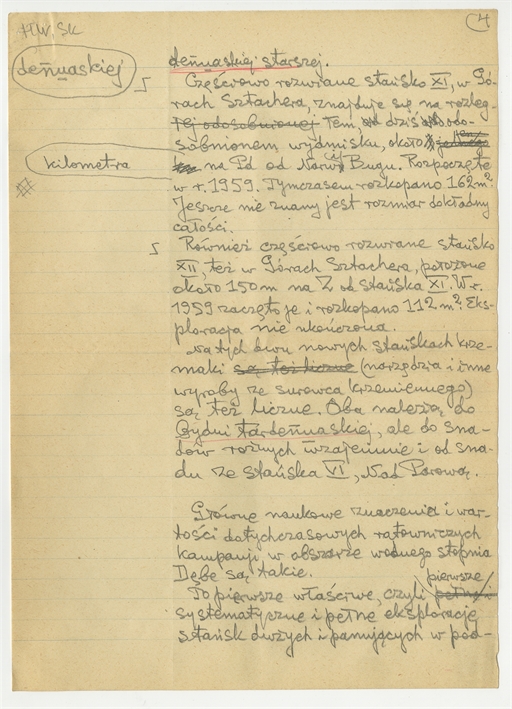 H.W. SK
4
deñuaskiej
deñuaskiej starszej.
Częściowo rozwiane stańsko XI, w Gó-
rach Sztachera, znajduje się na rozleg-
łej odosobnionej łem, dziś odo-
sobnionem wydmisku, około
kilometra
na Pd od Narwi Bugu. Rozpoczęte
w r. 1959. Tymczasem rozkopano 162 m².
Jeszcze nie znany jest rozmiar dokładny
całości.
Również częściowo rozwiane stańsko
XII, też w Górach Sztachera, położone
około 150 m na Z od stańska XI. W r.
1959 zaczęto je i rozkopano 112 m². Eks-
ploracja nie ukończona.
Na tych dwu nowych stańskach krze-
maki są też liczne (narzędzia i inne
wyroby ze surowca krzemiennego)
są też liczne. Oba należą do
Gydni tardeñuaskiej, ale do sna-
dów rożnych wzajemnie i od sna-
du ze stańska VI, Nad Parową.
Główne naukowe znaczenie i war-
tości dotychczasowych ratowniczych
kampanji w obszarze wodnego stopnia
Dębe są takie.
pierwsze
To pierwsze właściwe, czyli pełne
systematyczne i pełne eksploracje
stańsk dużych i panujących w pod-